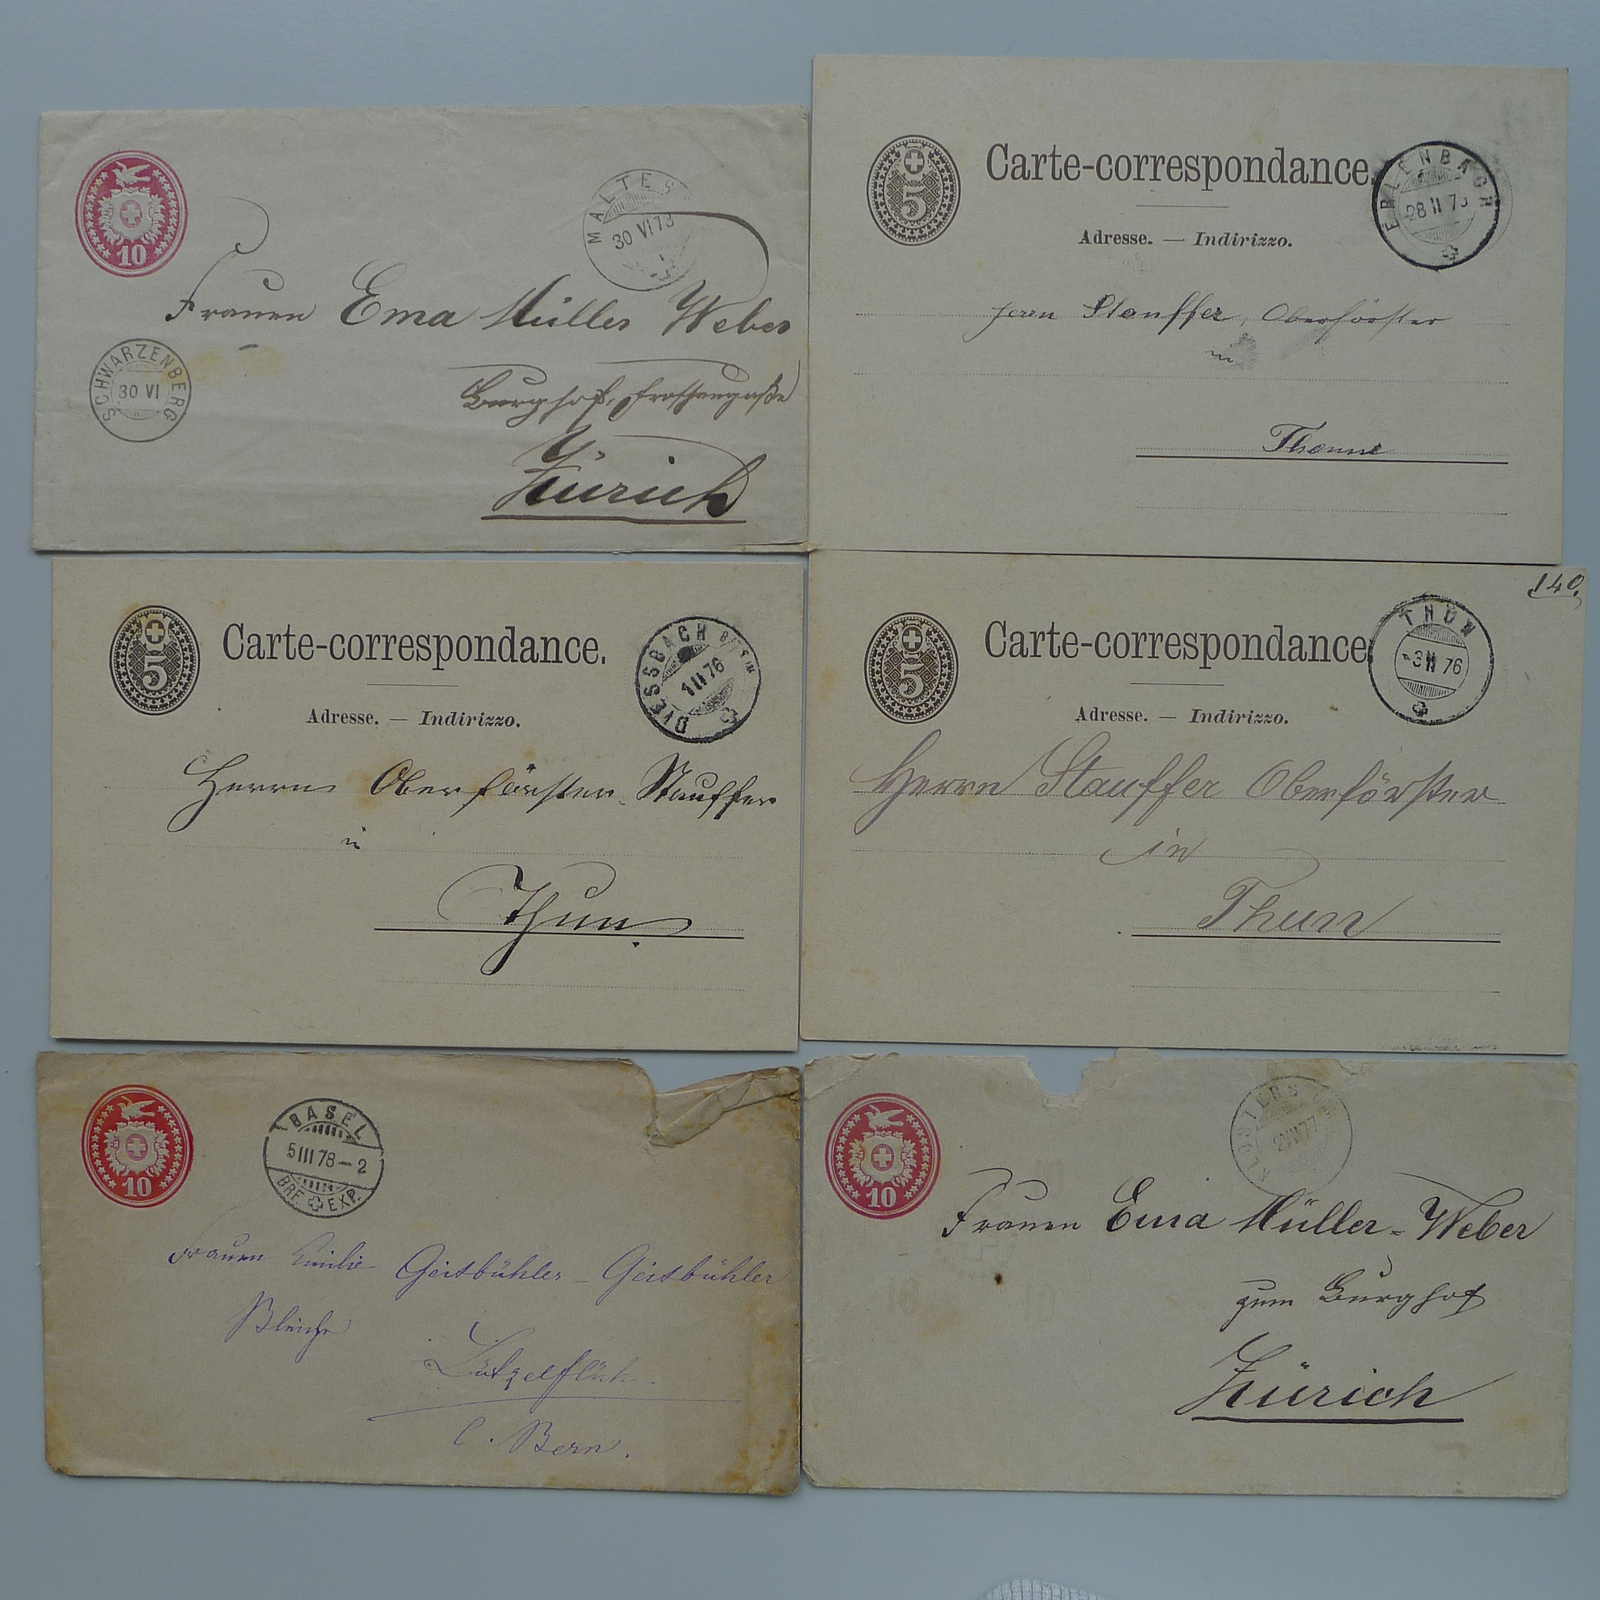 10
MALTERS
30 VI 73
Frauen Ema Müller Weber
SCHWARZENBERG
30 VI
Burghof, Froschaugaße
Zürich
5
Carte-correspondance.
Adresse. — Indirizzo.
ERLENBACH
28 II 7
Herrn Stauffer, Oberförster
in
Thoune
5
Carte-correspondance.
Adresse. — Indirizzo.
DIESSBACH
1 II 76
Herrn Oberförster Stauffer
in
Thun.
140.
5
Carte-correspondance.
Adresse. — Indirizzo.
THUN
-3 II 76
Herrn Stauffer Oberförster
in
Thun
10
BASEL
5 III 78-2
BRF. EXP.
Frauen Emilie Geisbühler - Geisbühler
Bleiche
Lützelflüh.
C. Bern.
10
KLOSTERS
Frauen Ema Müller-Weber
zum Burghof
Zürich